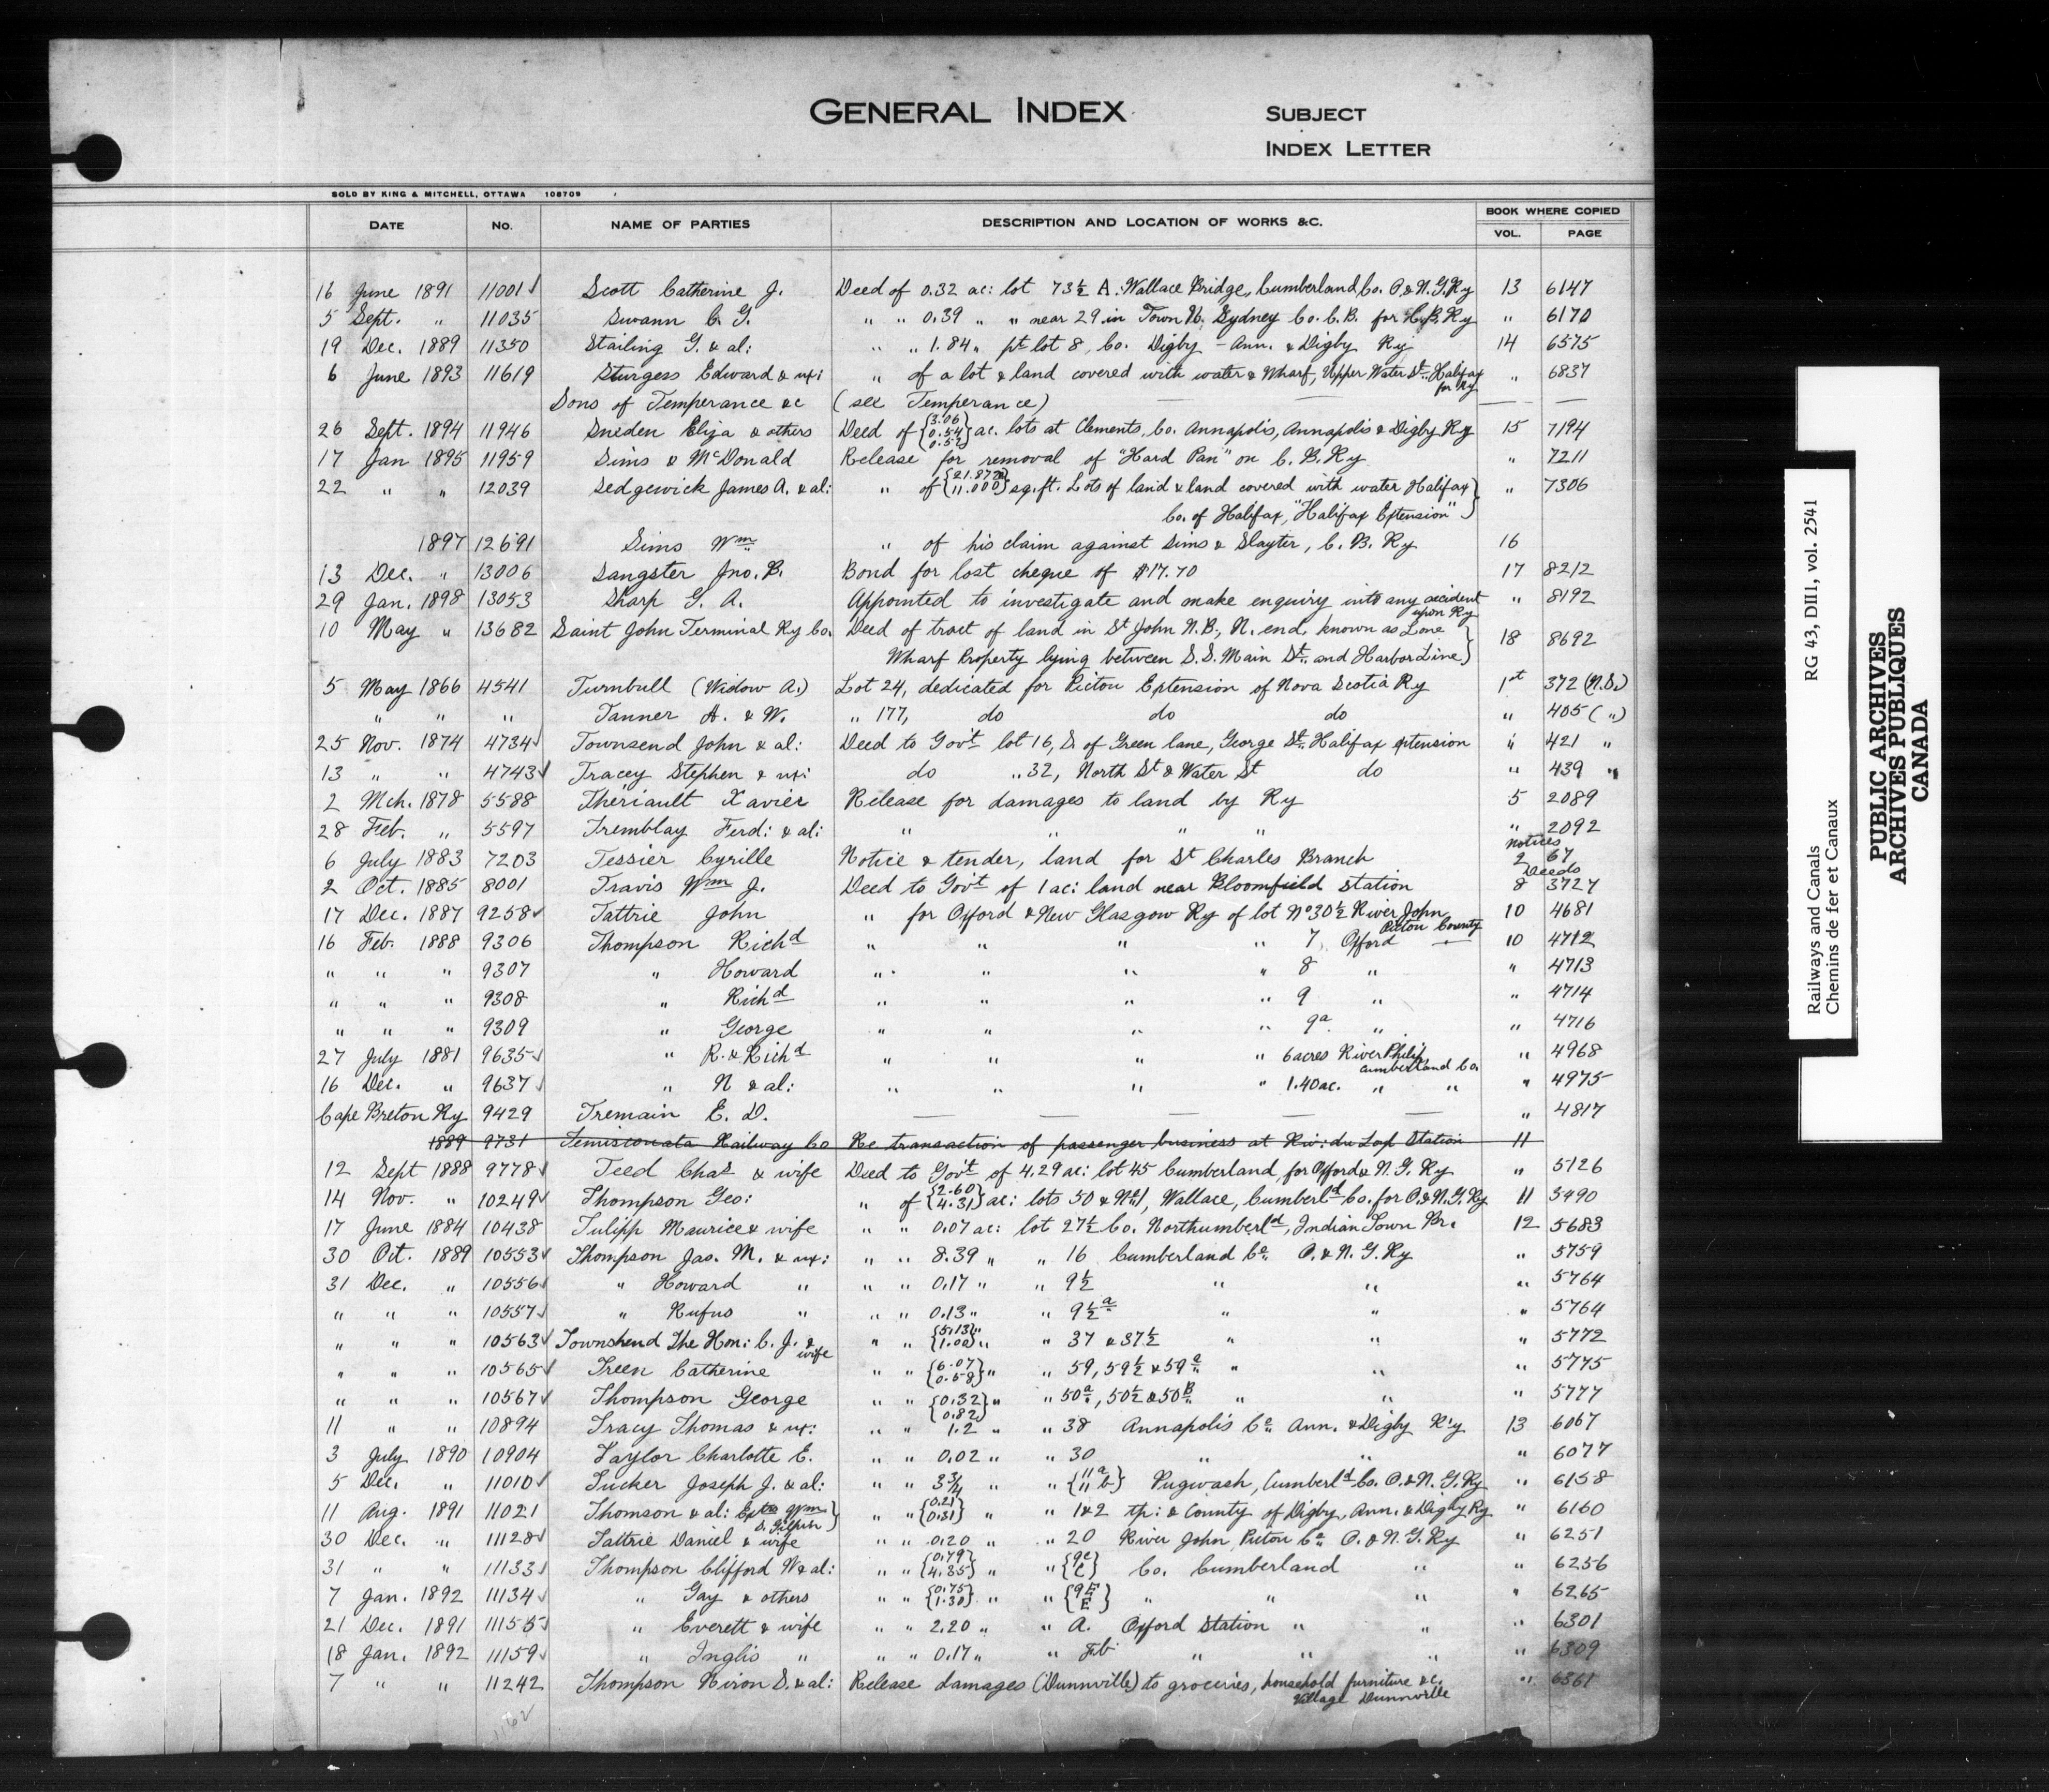 GENERAL INDEX
SUBJECT
INDEX LETTER
SOLD BY KING & MITCHELL, OTTAWA 108709
DATE NO. NAME OF PARTIES DESCRIPTION AND LOCATION OF WORKS &C. BOOK WHERE COPIED
VOL. PAGE
16 June 1891 11001 √ Scott Catherine J. Deed of 0.32 ac: lot 73½ A. Wallace Bridge, Cumberland Co. O. & N. G. Ry 13 6147
5 Sept. " 11035 Swann C. G. " " 0.39 " " near 29 in Town N. Sydney Co. C. B. for C. B. Ry " 6170
19 Dec. 1889 11350 Stailing G. & al: " " 1.84 " pt lot 8, Co. Digby - Ann. & Digby Ry 14 6575
6 June 1893 11619 Sturgess Edward & ux: " of a lot & land covered with water & Wharf, Upper Water St. Halifax for Ry " 6837
Sons of Temperance &c (see Temperance) — — — —
26 Sept. 1894 11946 Sneden Eliza & others Deed of {3.06 0.54 0.52} ac. lots at Clements, Co. Annapolis, Annapolis & Digby Ry 15 7194
17 Jan 1895 11959 Sims & McDonald Release for removal of "Hard Pan" on C. B. Ry " 7211
22 " " 12039 Sedgewick James A. & al: " of {21.877 11.000} sq. ft. Lots of land & land covered with water Halifax } " 7306
Co. of Halifax, "Halifax Extension"
1897 12691 Sims Wm " of his claim against Sims & Slayter, C. B. Ry 16
13 Dec. " 13006 Sangster Jno. B. Bond for lost cheque of $17.70 17 8212
29 Jan. 1898 13053 Sharp G. A. Appointed to investigate and make enquiry into any accident upon Ry " 8192
10 May " 13682 Saint John Terminal Ry Co. Deed of tract of land in St John N.B., N. end, known as Lone } 18 8692
Wharf Property lying between S.S. Main St. and Harbor Line
5 May 1866 4541 Turnbull (Widow A.) Lot 24, dedicated for Pictou Extension of Nova Scotia Ry 1st 372 (N.S.)
" " " Tanner A. & W. " 177, do do do " 405 ( " )
25 Nov. 1874 4734 √ Townsend John & al: Deed to Gov't lot 16, S. of Green lane, George St. Halifax extension " 421 "
13 " " 4743 √ Tracey Stephen & ux: do " 32, North St & Water St do " 439 "
2 Mch. 1878 5588 Thériault Xavier Release for damages to land by Ry 5 2089
28 Feb. " 5597 Tremblay Ferd: & al: " " " " " 2092
6 July 1883 7203 Tessier Cyrille Notice & tender, land for St Charles Branch notices 2 67
2 Oct. 1885 8001 Travis Wm J. Deed to Gov't of 1 ac: land near Bloomfield station Deeds 8 3727
17 Dec. 1887 9258 √ Tattrie John " for Oxford & New Glasgow Ry of lot No 30½ River John Pictou County 10 4681
16 Feb. 1888 9306 Thompson Richd " " " " 7, Oxford — 10 4712
" " " 9307 " Howard " " " " 8 " " 4713
" " " 9308 " Richd " " " " 9 " " 4714
" " " 9309 " George " " " " 9a " " 4716
27 July 1881 9635 √ " R. & Richd " " " " 6 acres River Philip Cumberland Co. " 4968
16 Dec. " 9637 √ " N & al: " " " " 1.40 ac. " " " 4975
Cape Breton Ry 9429 Tremain E. D. — — — — — " 4817
1889 9731 Temisconata Railway Co Re transaction of passenger business at Riv: du Loup Station 11
12 Sept 1888 9778 √ Teed Chas & wife Deed to Gov't of 4.29 ac: lot 45 Cumberland, for Oxford & N. G. Ry " 5126
14 Nov. " 10249 √ Thompson Geo: " of {2.60 4.31} ac: lots 50 & No 1, Wallace, Cumberld Co. for O. & N. G. Ry 11 5490
17 June 1884 10438 Tulipp Maurice & wife " " 0.07 ac: lot 27½ Co. Northumberld, Indian Town Br. 12 5683
30 Oct. 1889 10553 √ Thompson Jas. M. & ux: " " 8.39 " " 16 Cumberland Co. O. & N. G. Ry " 5759
31 Dec. " 10556 √ " Howard " " " 0.17 " " 9½ " " " 5764
" " " 10557 √ " Rufus " " " 0.13 " " 9½a " " " 5764
" " " 10563 √ Townshend The Hon: C. J. & wife " " {5.13 1.00} " " 37 & 37½ " " " 5772
" " " 10565 √ Treen Catherine " " {6.07 0.58} " " 59, 59½ & 59a " " " 5775
" " " 10567 √ Thompson George " " {0.32 0.82} " " 50a, 50½ & 50B " " " 5777
11 " " 10894 Tracy Thomas & ux: " " 1.2 " " 38 Annapolis Co. Ann. & Digby R'y 13 6067
3 July 1890 10904 Taylor Charlotte E. " " 0.02 " " 30 " " " 6077
5 Dec. " 11010 √ Tucker Joseph J. & al: " " 3¾ " " {11a 11b} Pugwash, Cumberld Co. O. & N. G. Ry " 6158
11 Aug. 1891 11021 Thomson & al: Extrs Wm S. Gilpin } " " {0.21 0.31} " " 1 & 2 tp: & County of Digby, Ann. & Digby Ry " 6160
30 Dec. " 11128 √ Tattrie Daniel & wife " " 0.20 " " 20 River John, Pictou Co. O. & N. G. Ry " 6251
31 " " 11133 √ Thompson Clifford W & al: " " {0.79 4.35} " " {9c C} Co. Cumberland " " 6256
7 Jan. 1892 11134 √ " Gay & others " " {0.75 1.30} " " {9E E} " " " " 6265
21 Dec. 1891 11155 √ " Everett & wife " " 2.20 " " A. Oxford Station " " " 6301
18 Jan. 1892 11159 √ " Inglis " " " 0.17 " " " " " " 6309
7 " " 11242 Thompson Niron S. & al: Release damages (Dunnville) to groceries, household furniture &c. Village Dunnville " 6361
1162
RG 43, DII1, vol. 2541
Railways and Canals
Chemins de fer et Canaux
PUBLIC ARCHIVES
ARCHIVES PUBLIQUES
CANADA